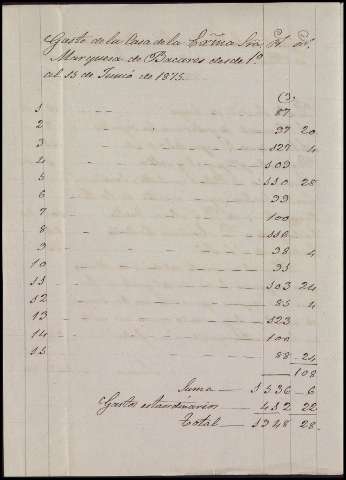 Gasto de la Casa de la Exma Sra, Rs. ms.
Marquesa de Bacares desde 1º
al 15 de Junio de 1875.
1 87
2 97 20
3 127 4
4 109
5 110 28
6 99
7 100
8 116
9 98 4
10 91
11 103 24
12 85 4
13 123
14 100
15 88 24
108
Suma 1536 6
Gastos estraordinarios 412 22
Total 1948 28